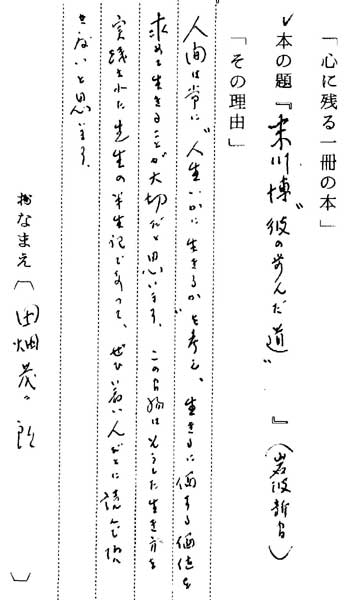 「心に残る一冊の本」
本の題『末川博"彼の歩んだ道"』(岩波新書)
「その理由」
人間は常に"人生いかに生きるか"を考え、生きるに価する価値を
求めて生きることが大切だと思います。この書物はそうした生き方を
実践された先生の半生記であって、ぜひ若い人びとに読んで頂
きたいと思います。
おなまえ〔田畑茂二郎〕